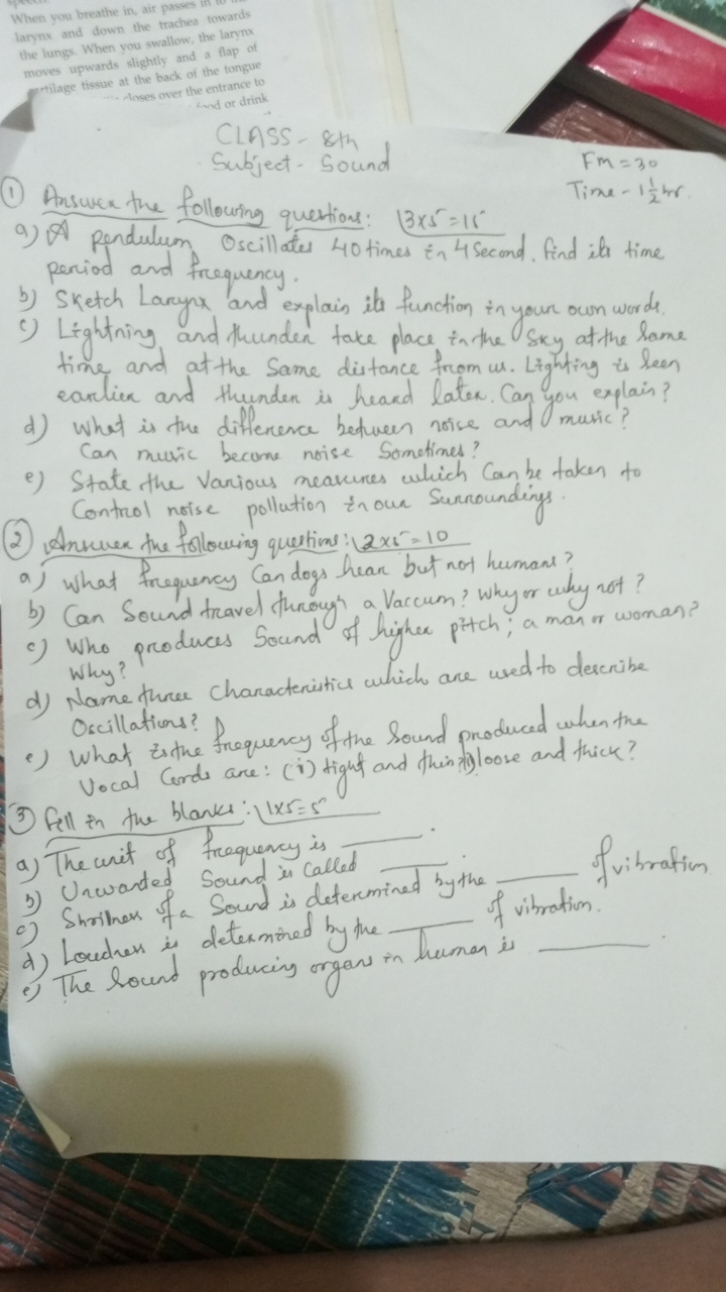 When you breathe in, air passes in to
larynx and down the trachea towards
the lungs. When you swallow, the larynx
moves upwards slightly and a flap of
tissue at the back of the tongue
closes over the entrance to
or drink
CLASS - 8th
Subject - Sound
Fm = 30
Time - 1 1/2 hr.
① Answer the following questions: 3x5=15
a) A pendulum Oscillates 40 times in 4 Second. find its time
period and frequency.
b) Sketch Larynx and explain its function in your own words.
c) Lightning and thunder take place in the Sky at the Same
time and at the Same distance from us. Lighting is Seen
earlier and thunder is heard later. Can you explain?
d) What is the difference between noise and music?
Can music become noise Sometimes?
e) State the Various measures which Can be taken to
Control noise pollution in our Surroundings.
② Answer the following questions: 2x5=10
a) What frequency Can dogs hear but not humans?
b) Can Sound travel through a Vaccum? Why or why not?
c) Who produces Sound of higher pitch; a man or woman?
Why?
d) Name three Characteristics which are used to describe
Oscillations?
e) What is the frequency of the Sound produced when the
Vocal Cords are: (i) tight and thin (ii) loose and thick?
③ fill in the blanks: 1x5=5
a) The unit of frequency is ______.
b) Unwanted Sound is Called ______.
c) Shrilness of a Sound is determined by the ______ of vibration
d) Loudness is determined by the ______ of vibration.
e) The Sound producing organs in human is ______.